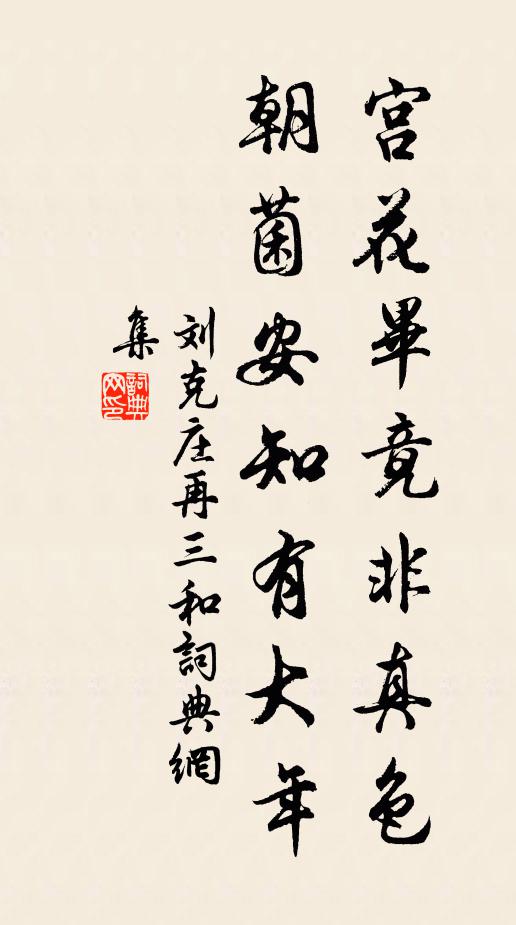 宫花畢竟非真色
朝菌安知有大年
刘克庄再三和詞典網
集
詞典網印